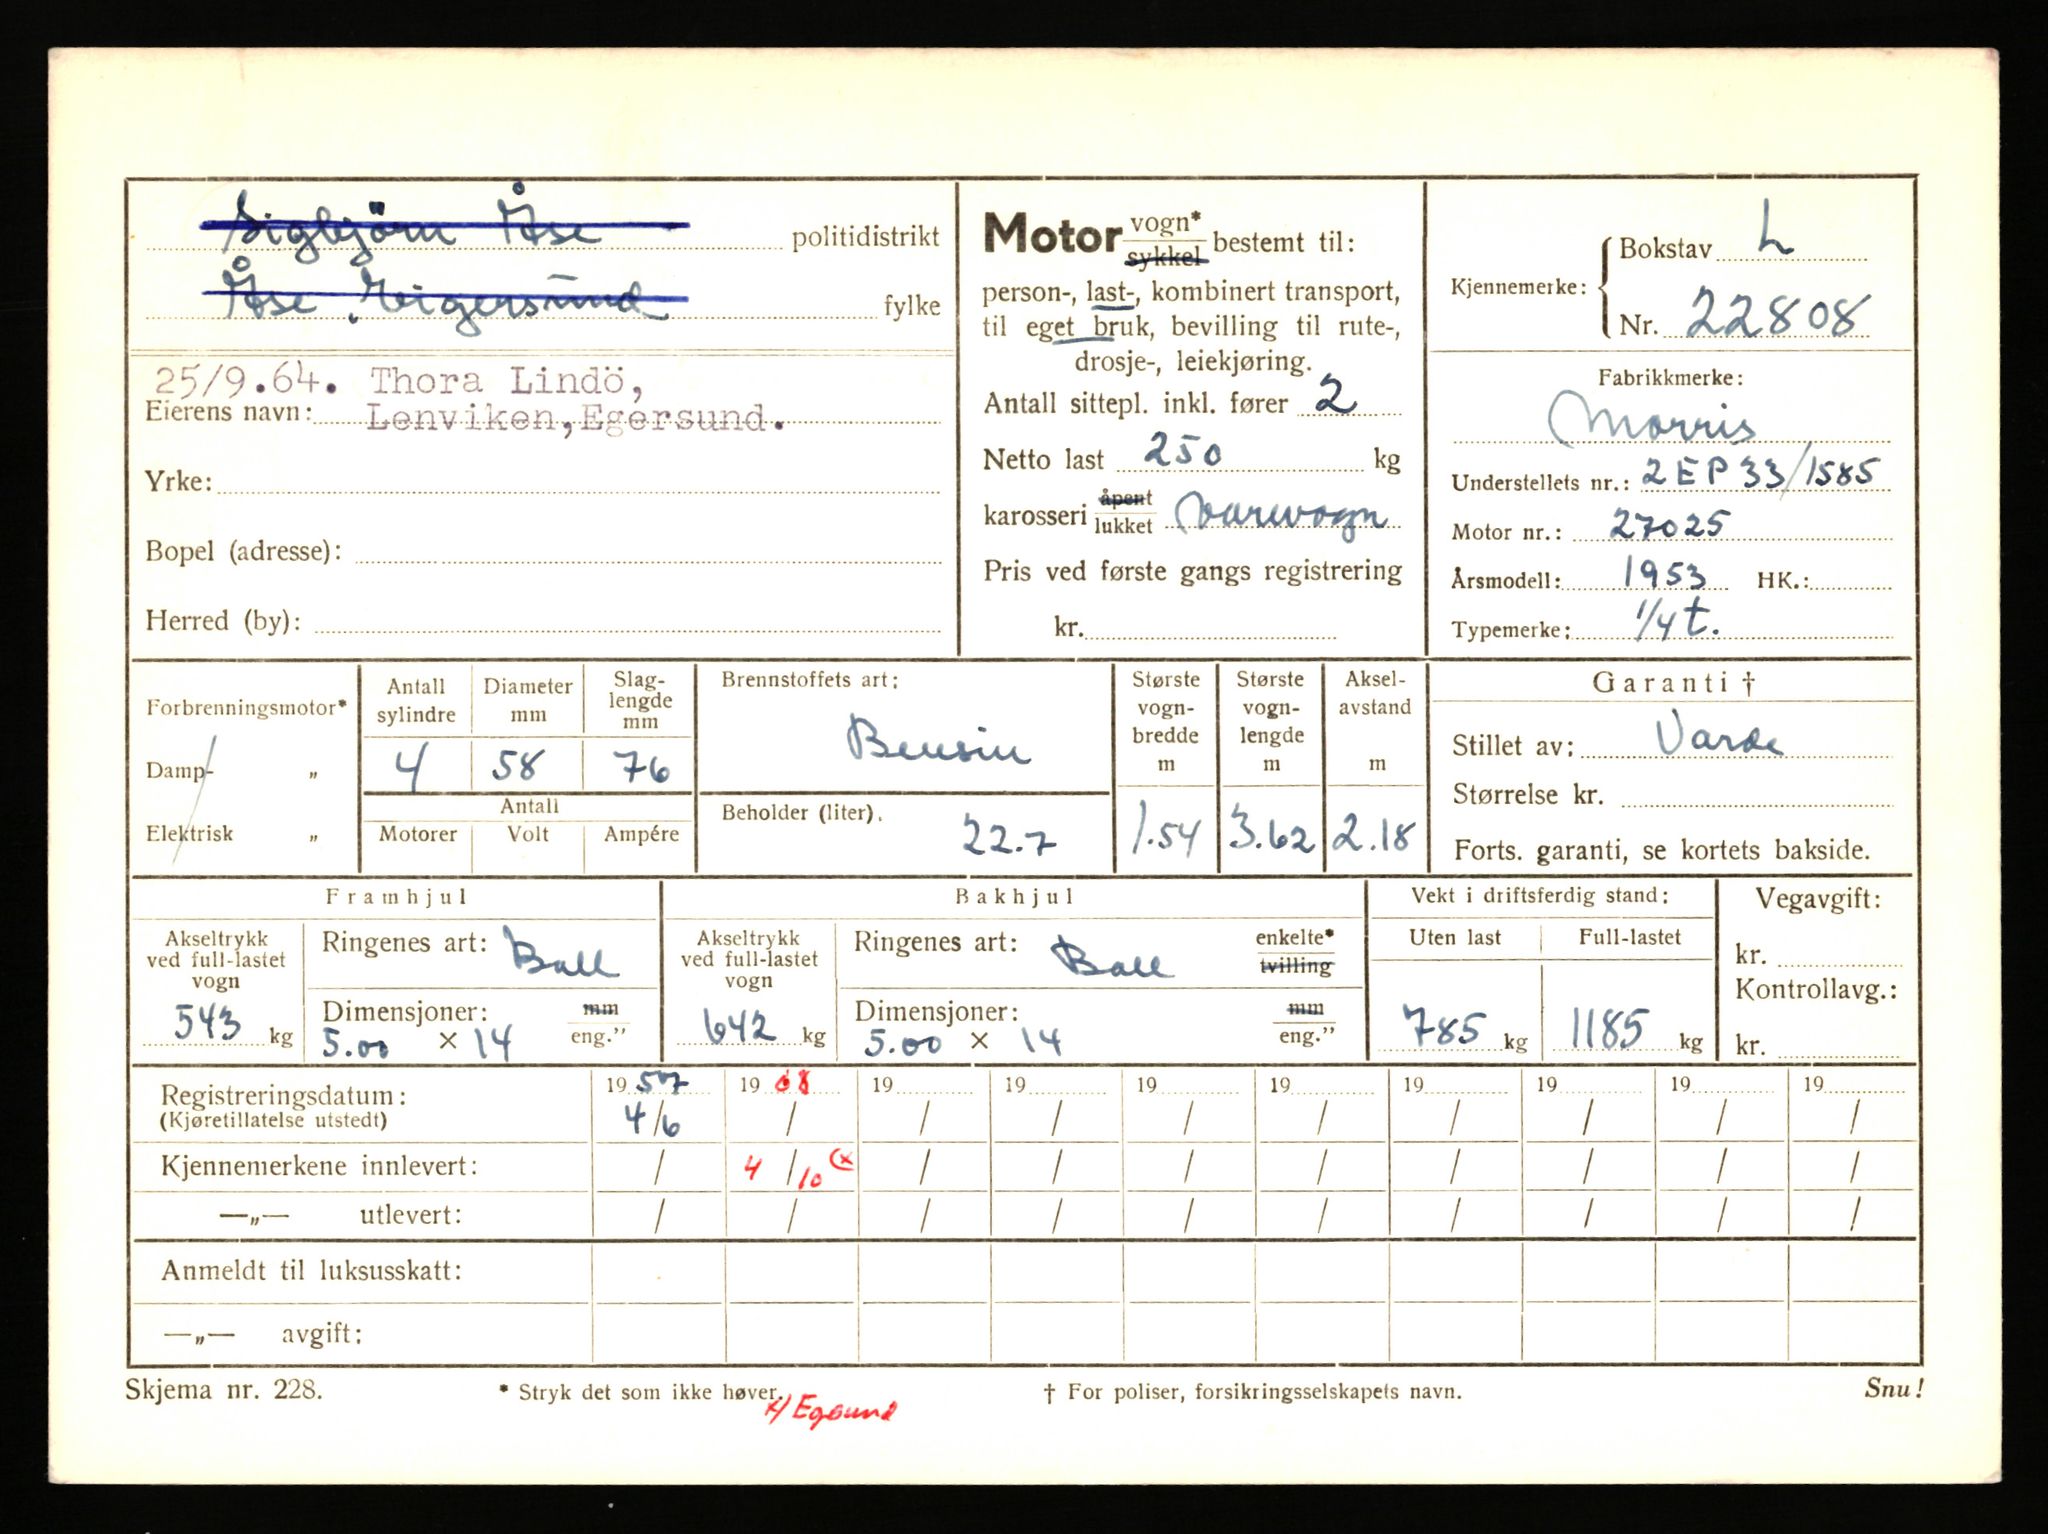 Sigbjörn Åse politidistrikt
Åse, Eigersund fylke
25/9.64. Thora Lindö,
Eierens navn: Lenviken, Egersund.
Yrke:
Bopel (adresse):
Herred (by):
Motor vogn* sykkel bestemt til:
person-, last-, kombinert transport,
til eget bruk, bevilling til rute-,
drosje-, leiekjøring.
Antall sittepl. inkl. fører 2
Netto last 250 kg
karosseri åpent lukket varevogn
Pris ved første gangs registrering
kr.
Kjennemerke: Bokstav L
Nr. 22808
Fabrikkmerke:
Morris
Understellets nr.: 2EP33/1585
Motor nr.: 27025
Årsmodell: 1953 HK.:
Typemerke: 1/4 t.
Forbrenningsmotor*
Damp- „
Elektrisk „
Antall sylindre
Diameter mm
Slag-lengde mm
4 58 76
Antall
Motorer Volt Ampére
Brennstoffets art:
Bensin
Beholder (liter).
22.7
Største vogn-bredde m
1.54
Største vogn-lengde m
3.62
Aksel-avstand m
2.18
Garanti †
Stillet av: Varde
Størrelse kr.
Forts. garanti, se kortets bakside.
Framhjul
Akseltrykk ved full-lastet vogn
543 kg
Ringenes art: Ball
Dimensjoner: mm
5.00 × 14 eng.”
Bakhjul
Akseltrykk ved full-lastet vogn
642 kg
Ringenes art: Ball enkelte* tvilling
Dimensjoner: mm
5.00 × 14 eng.”
Vekt i driftsferdig stand:
Uten last Full-lastet
785 kg 1185 kg
Vegavgift:
kr.
Kontrollavg.:
kr.
Registreringsdatum: 19 57 19 68 19 19 19 19 19 19 19 19
(Kjøretillatelse utstedt) 4/6 / / / / / / / / /
Kjennemerkene innlevert: / 4/10 (x / / / / / / / /
—„— utlevert: / / / / / / / / / /
Anmeldt til luksusskatt:
—„— avgift:
Skjema nr. 228.
* Stryk det som ikke høver.
† For poliser, forsikringsselskapets navn.
Snu!
x/ Egsund